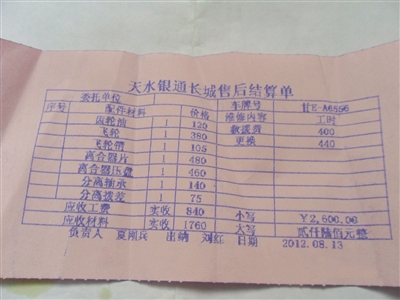 天水银通长城售后结算单
委托单位 车牌号 甘E-A6556
序号 配件材料 价格 维修内容 工时
齿轮油 1 120 救援费 400
飞轮 1 380 更换 440
飞轮槽 1 105
离合器片 1 480
离合器压盘 1 460
分离轴承 1 140
分离拨叉 1 75
应收工费 实收 840 小写 ¥2,600.00
应收材料 实收 1760 大写 贰仟陆佰元整
负责人 夏刚兵 出纳 刘红 日期 2012.08.13